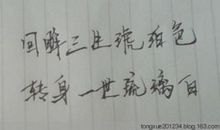 回眸三生琥珀色
转身一世琉璃白
tongxue201234.blog.163.com